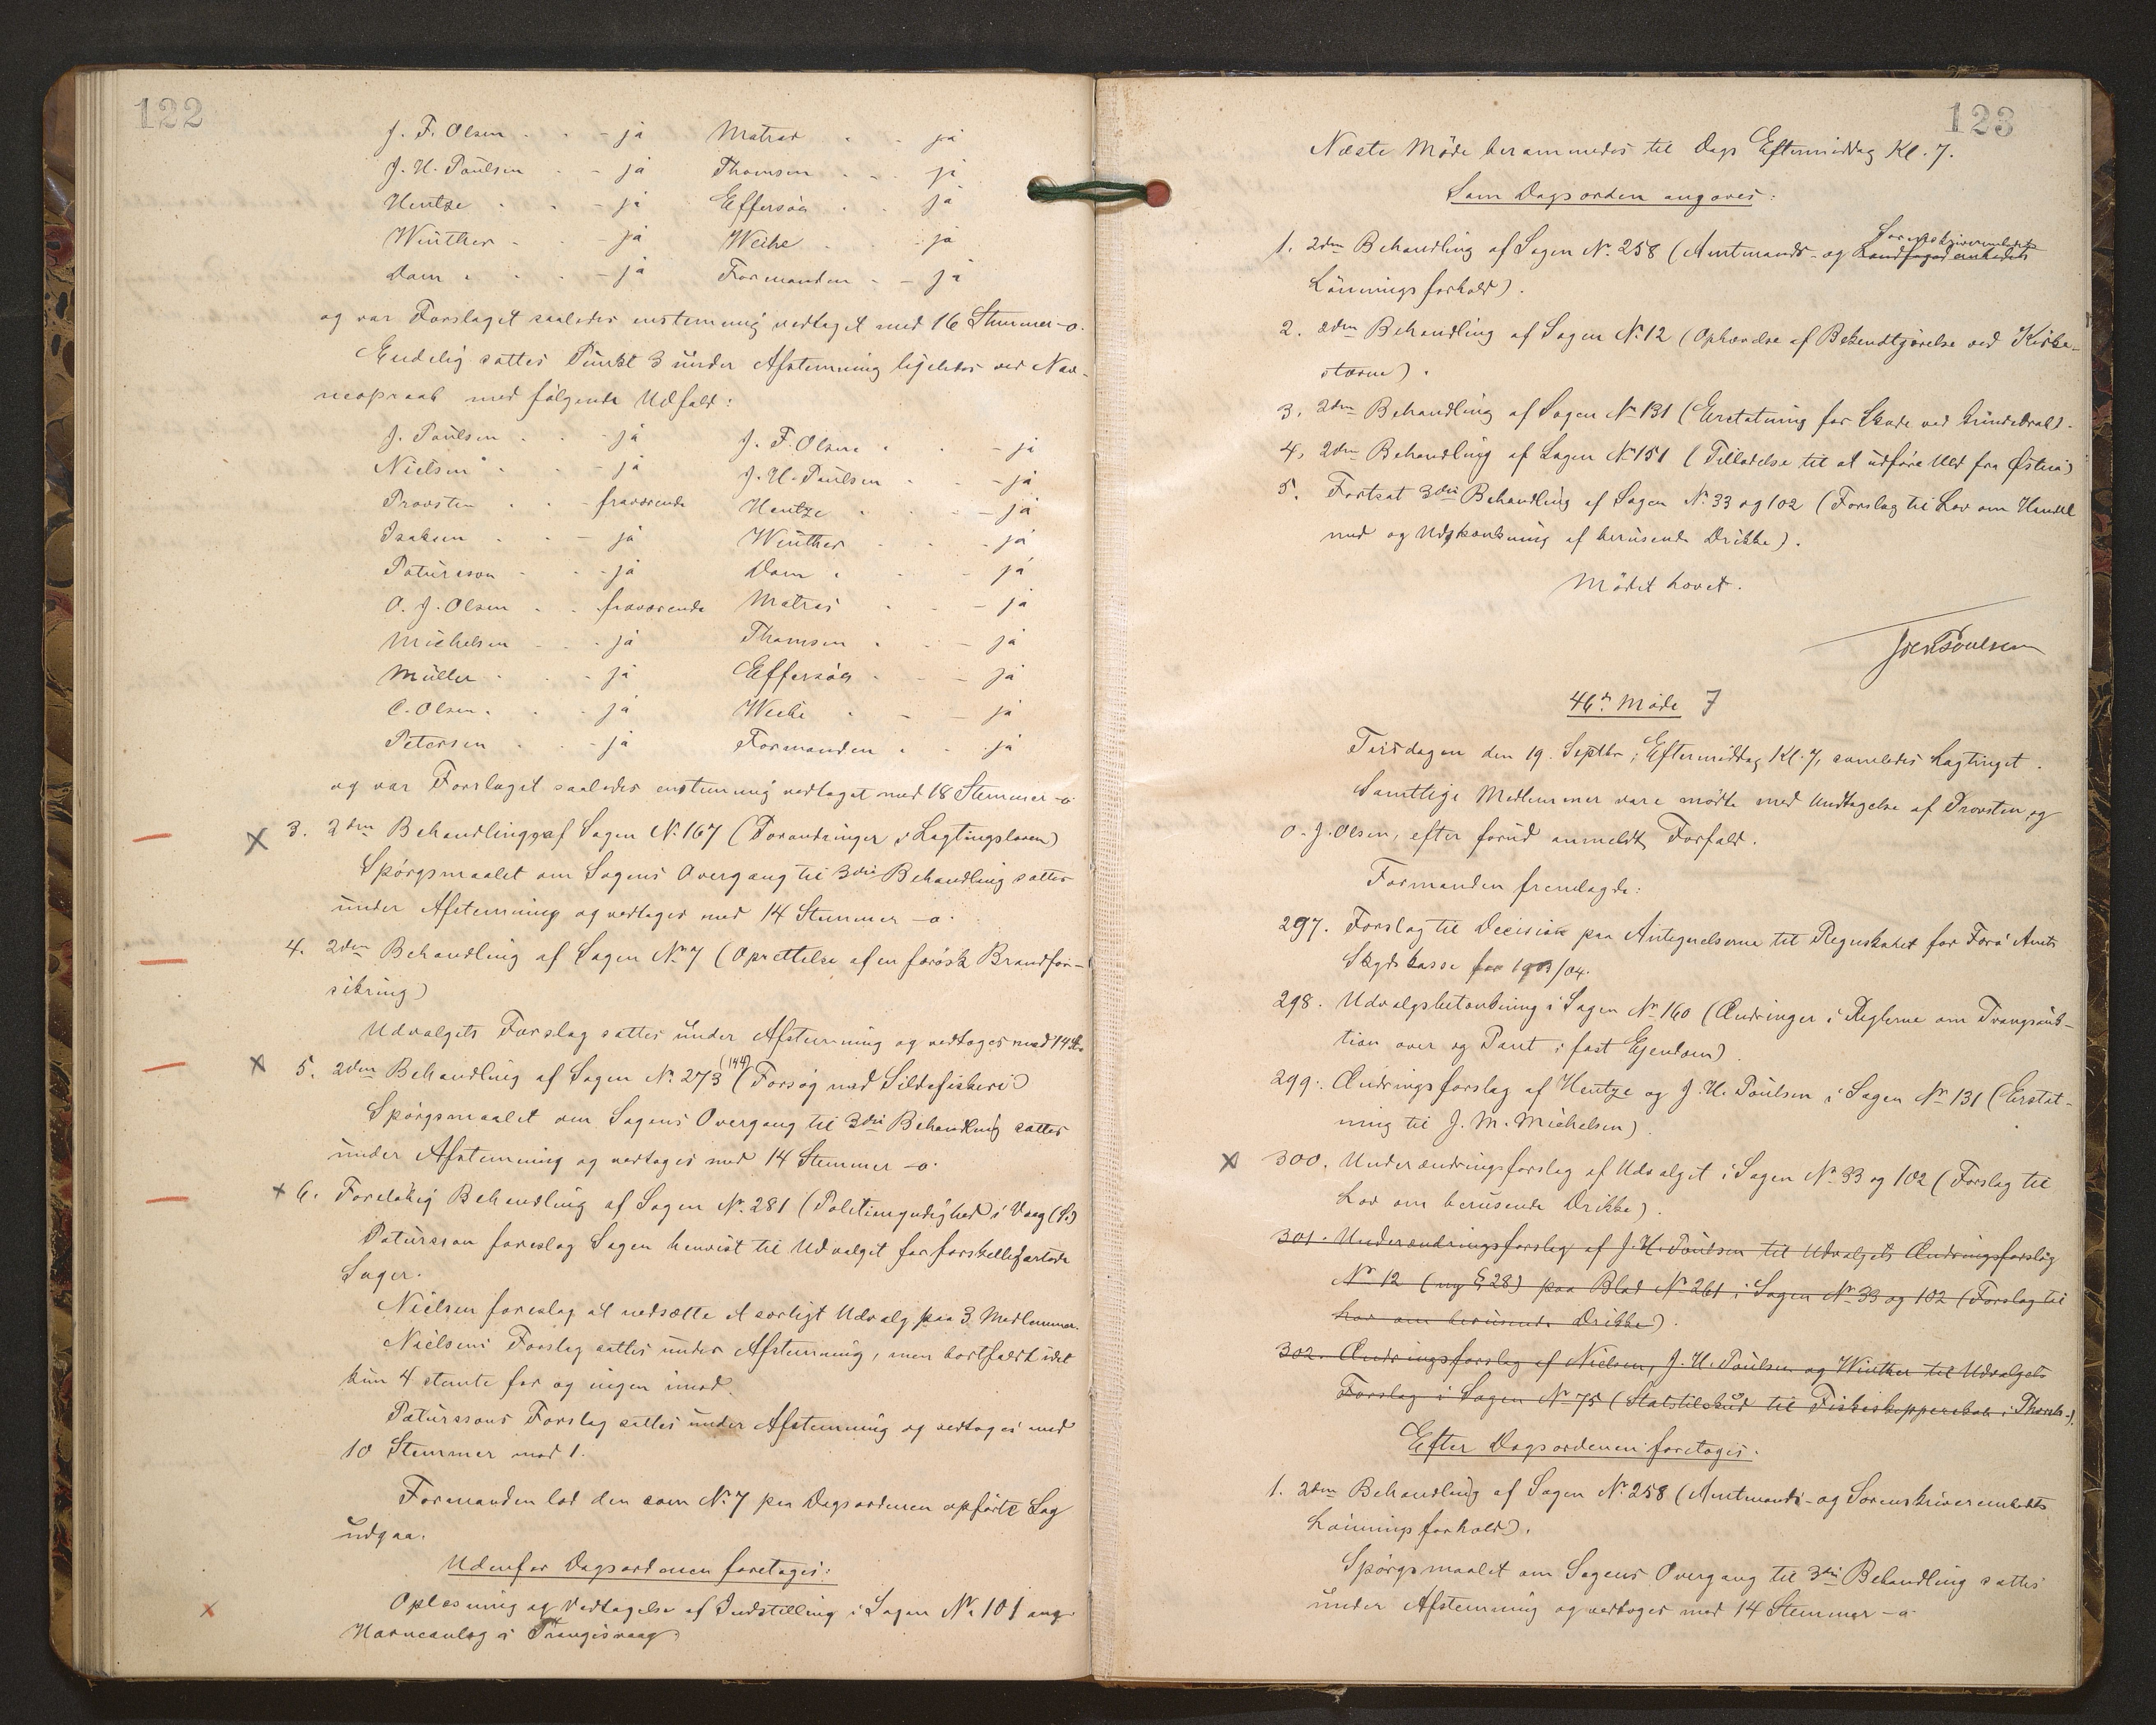 122
J. F. Olsen - - - ja Matras - - ja
J. H. Poulsen - - ja Thomsen - - ja
Hentze - - - ja Effersøe - - ja
Winther - - - ja Weihe - - ja
Dam - - - ja Formanden - - ja
og var Forslaget saaledes enstemmig vedtaget med 16 Stemmer - o.
Endelig sattes Punkt 3 under Afstemning ligeledes ved Nav-
neopraab med følgende Udfald:
J. Poulsen - - ja J. F. Olsen - - ja
Nielsen - - ja J. H. Poulsen - - ja
Provsten - - fraværende Hentze - - ja
Isaksen - - ja Winther - - ja
Patursson - - ja Dam - - ja
O. J. Olsen - - fraværende Matras - - ja
Michelsen - - ja Thomsen - - ja
Müller - - ja Effersøe - - ja
C. Olsen - - ja Weihe - - ja
Petersen - - ja Formanden - - ja
og var Forslaget saaledes enstemmig vedtaget med 18 Stemmer - o.
3. 2den Behandling af Sagen No. 167 (Forandringer i Lagtingsloven)
Spørgsmaalet om Sagens Overgang til 3die Behandling sattes
under Afstemning og vedtoges med 14 Stemmer - o.
4. 2den Behandling af Sagen No. 7 (Oprettelse af en færøsk Brandfor-
sikring)
Udvalgets Forslag sattes under Afstemning og vedtoges med 14 St.
5. 2den Behandling af Sagen No. 273 (144) (Forsøg med Sildefiskeri)
Spørgsmaalet om Sagens Overgang til 3die Behandling sattes
under Afstemning og vedtoges med 14 Stemmer - o.
6. Foreløbig Behandling af Sagen No. 281 (Politimyndighed i Vaag (S.)
Patursson foreslog Sagen henvist til Udvalget for forskelligartede
Sager.
Nielsen foreslog at nedsætte et særligt Udvalg paa 3 Medlemmer.
Nielsens Forslag sattes under Afstemning, men bortfaldt idet
kun 4 stemte for og ingen imod.
Paturssons Forslag sattes under Afstemning og vedtoges med
10 Stemmer mod 1.
Formanden lod den som No. 7 paa Dagsordenen opførte Sag
udgaa.
Udenfor Dagsordenen foretoges:
Oplæsning og Vedtagelse af Indstilling i Sagen No. 101 ang.
Havneanlæg i Trangisvaag.
123
Næste Møde berammedes til Dags Eftermiddag Kl. 7.
Som Dagsorden angaves:
1. 2den Behandling af Sagen No. 258 (Amtmands- og Landfogedembedets Sorenskriverembedets
Lønningsforhold).
2. 2den Behandling af Sagen No. 12 (Ophævelse af Bekendtgørelse ved Kirke-
stævne).
3. 2den Behandling af Sagen No. 131 (Erstatning for Skade ved Hundedrab).
4. 2den Behandling af Sagen No. 151 (Tilladelse til at udføre Uld fra Østrø)
5. Fortsat 3die Behandling af Sagen No. 33 og 102 (Forslag til Lov om Handel
med og Udskænkning af berusende Drikke).
Mødet hævet.
46de Møde 7
Tirsdagen den 19. Septbr., Eftermiddag Kl. 7, samledes Lagtinget.
Samtlige Medlemmer vare mødte med Undtagelse af Provsten og
O. J. Olsen, efter forud anmeldt Forfald.
Formanden fremlagde:
297. Forslag til Decision paa Antegnelserne til Regnskabet for Færø Amts
Skydskasse for 1903/04.
298. Udvalgsbetænkning i Sagen No. 160 (Ændringer i Reglerne om Tvangsauk-
tion over og Pant i fast Ejendom).
299. Ændringsforslag af Hentze og J. H. Poulsen i Sagen No. 131 (Erstat-
ning til J. M. Michelsen).
300. Underændringsforslag af Udvalget i Sagen No. 33 og 102 (Forslag til
Lov om berusende Drikke).
301. Underændringsforslag af J. H. Poulsen til Udvalgets Ændringsforslag
No. 12 (ny § 28) paa Blad No. 261 i Sagen No. 33 og 102 (Forslag til
Lov om berusende Drikke).
302. Ændringsforslag af Nielsen, J. H. Poulsen og Winther til Udvalgets
Forslag i Sagen No. 75 (Statstilskud til Fiskeskipperskole i Thorsh.).
Efter Dagsordenen foretoges:
1. 2den Behandling af Sagen No. 258 (Amtmands- og Sorenskriverembedets
Lønningsforhold).
Spørgsmaalet om Sagens Overgang til 3die Behandling sattes
under Afstemning og vedtoges med 14 Stemmer - o.